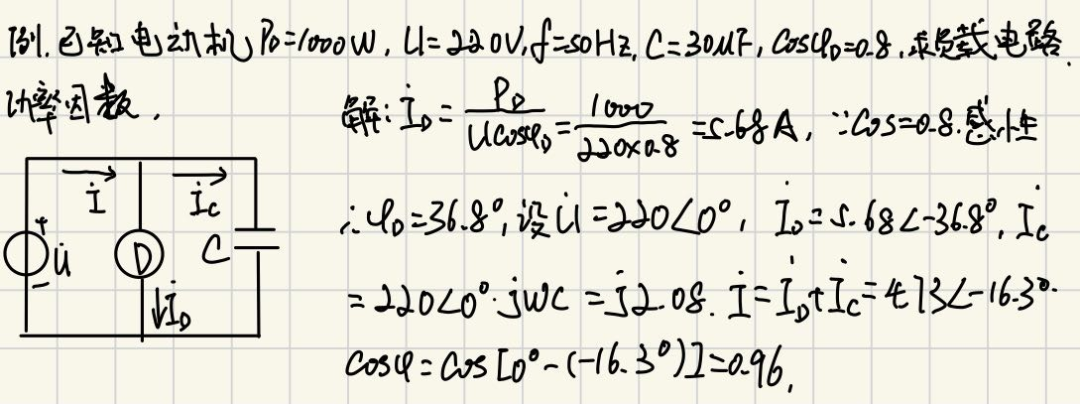 例.已知电动机P_D=1000W,U=220V,f=50Hz,C=30μF,cosφ_D=0.8,求负载电路
功率因数.
解:İ_D=P_D/(Ucosφ_D)=1000/(220×0.8)=5.68A,∵cos=0.8.感性
∴φ_D=36.8°,设U̇=220∠0°,İ_D=5.68∠-36.8°,İ_C
=220∠0°·jωC=j2.08.İ=İ_D+İ_C=4.73∠-16.3°.
cosφ=cos[0°-(-16.3°)]=0.96,
İ İ_C
+
U̇ D C
-
İ_D